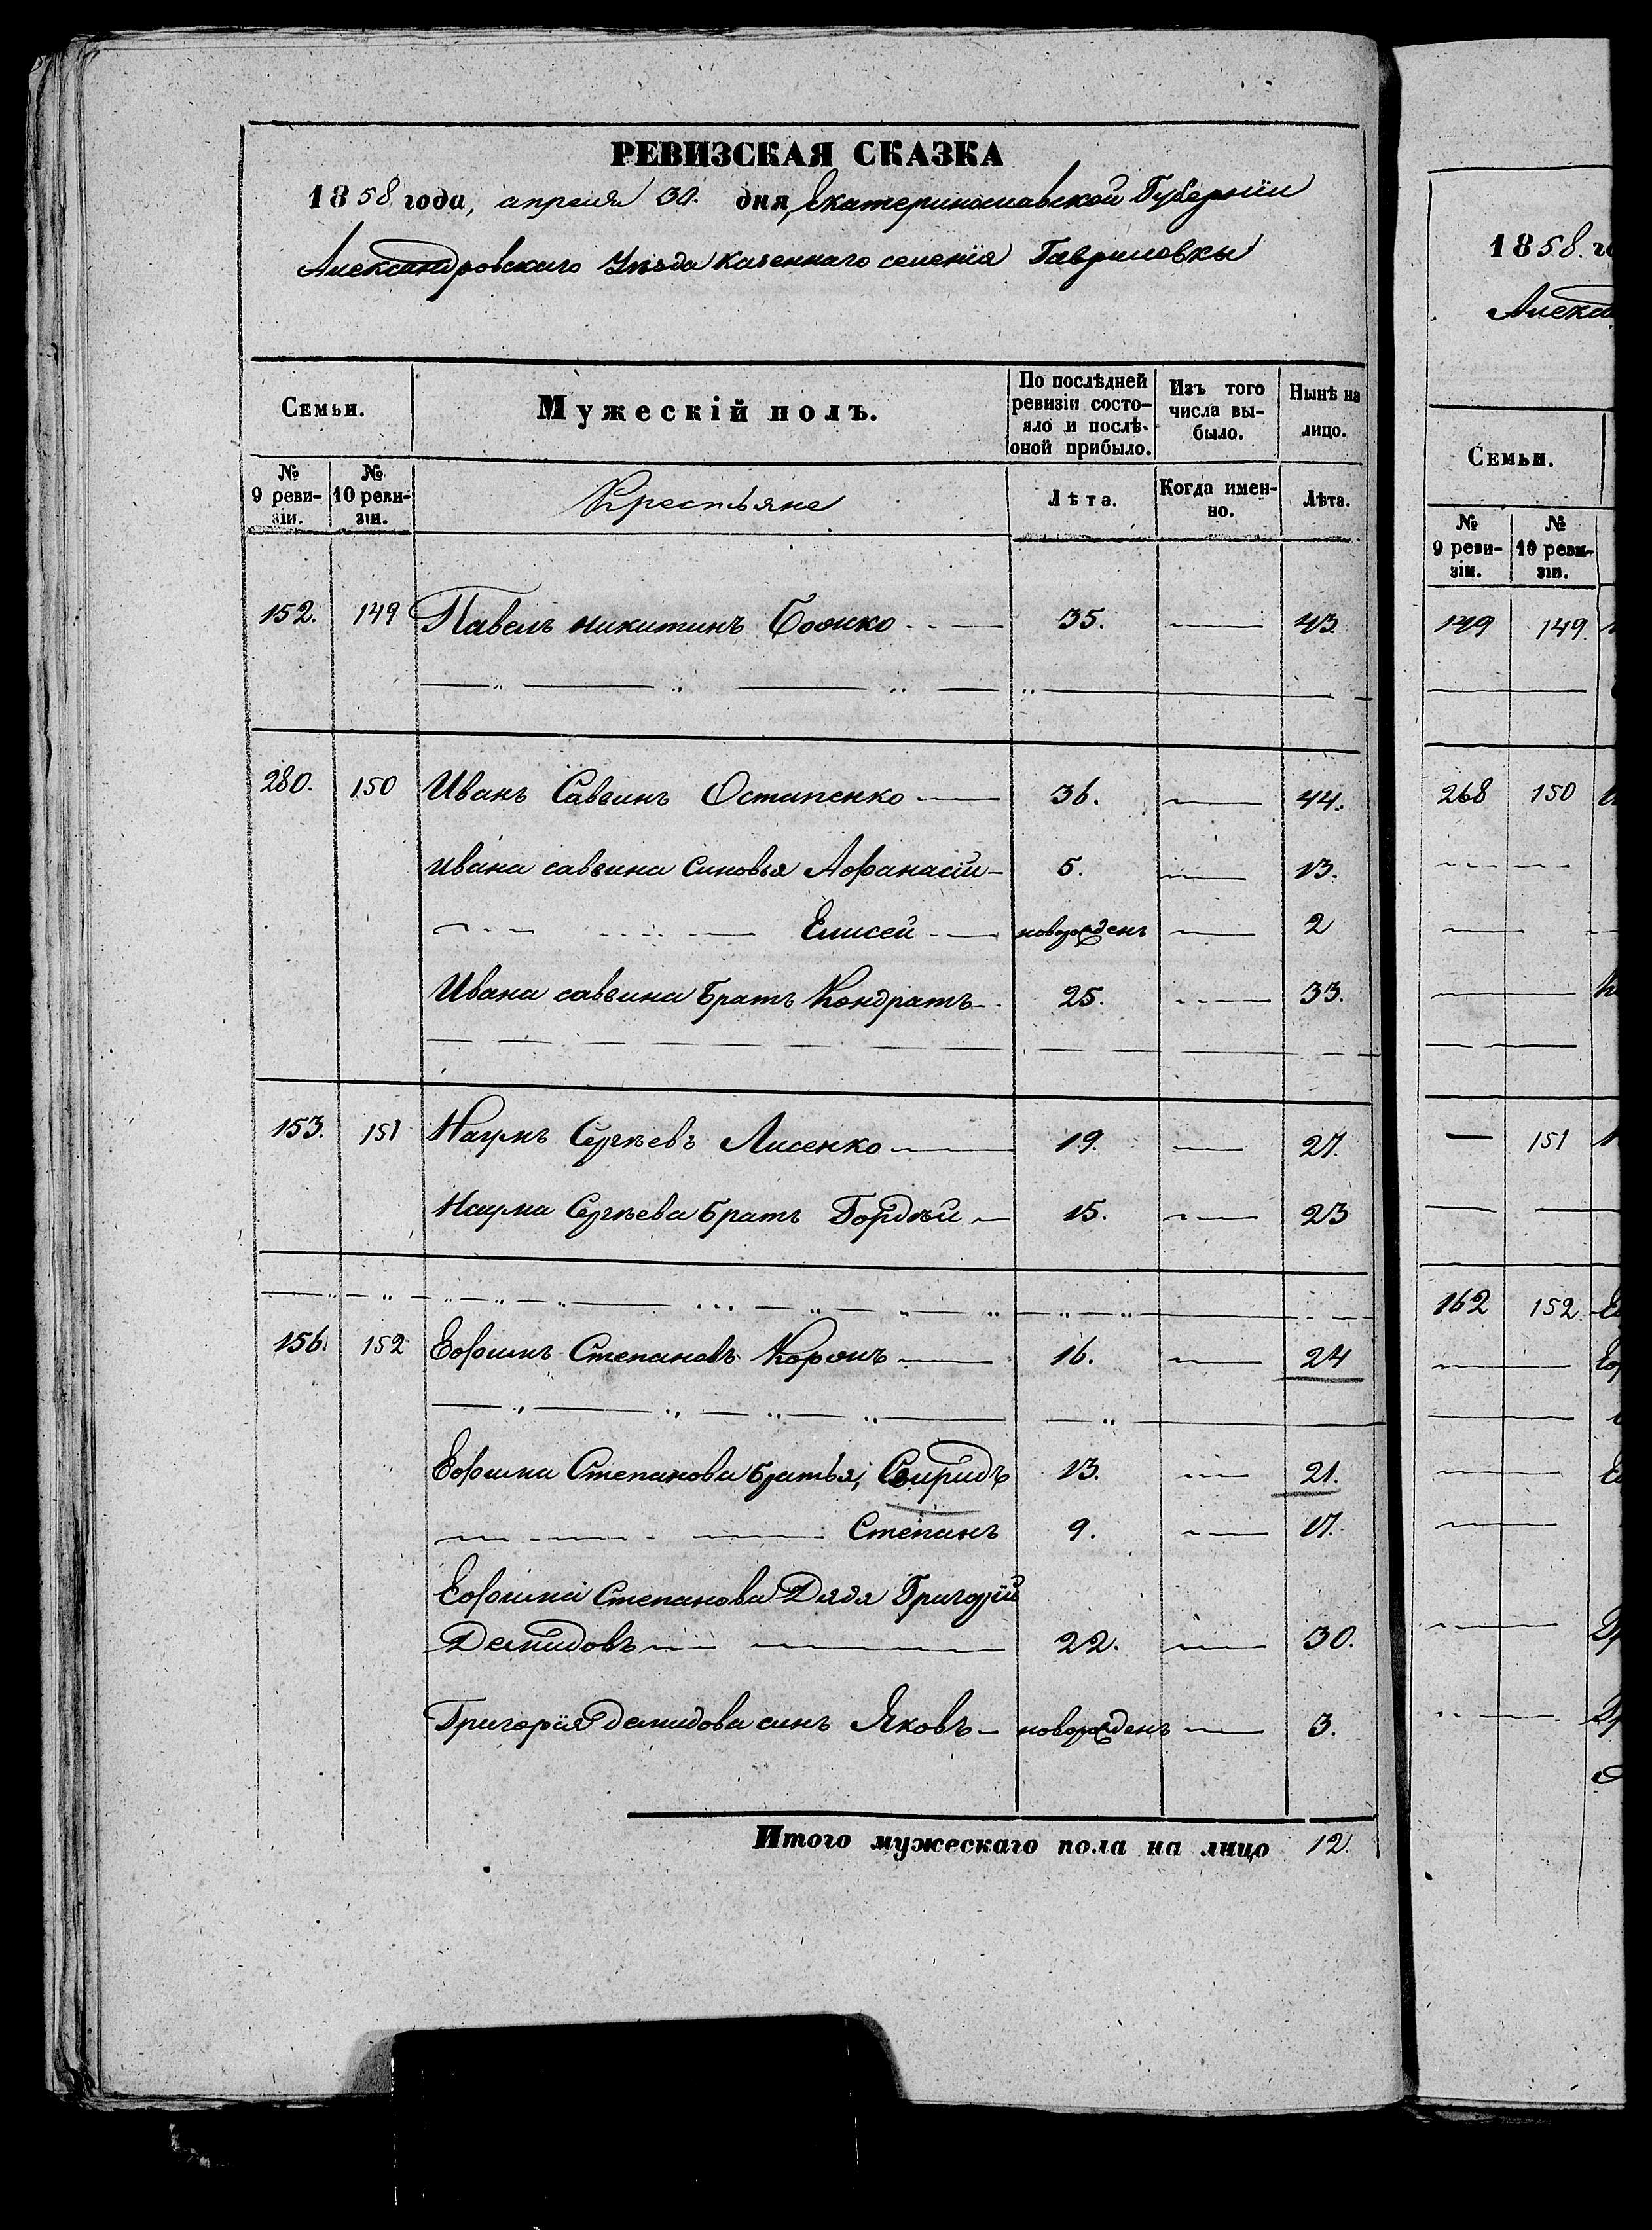 РЕВИЗСКАЯ СКАЗКА
1858 года, апреля 30. дня, Екатеринославской Губерніи
Александровскаго Уѣзда казеннаго селенія Гавриловки
Семьи.
Мужескій полъ.
По послѣдней ревизіи состо-
яло и послѣ
оной прибыло.
Изъ того числа вы-
было.
Нынѣ на лицо.
№ 9 реви-
зіи.
№ 10 реви-
зіи.
Крестьяне
Лѣта.
Когда имен-
но.
Лѣта.
152. 149 Павелъ никитинъ 35. 43.
280. 150 Иванъ Саввинъ Остапенко 36. 44.
Ивана саввина синовья Афанасій 5. 13.
Елисей новорожденъ 2
Ивана саввина Братъ Кондратъ 25. 33.
153. 151 Наумъ Сергѣевъ Лисенко 19. 27.
Наума Сергѣева братъ Гордѣй 15. 23
156. 152 Ефимъ Степановъ 16. 24
Ефима Степанова братья, Свиридъ 13. 21.
Степанъ 9. 17.
Ефима Степанова Дядя Григорій
Демидовъ 22. 30.
Григорія демидова синъ Яковъ новорожденъ 3.
Итого мужескаго пола на лицо 12.
1858. го
Алекса
Семьи.
№ 9 реви-
зіи.
№ 10 реви-
зіи.
149 149.
268 150
151
162 152